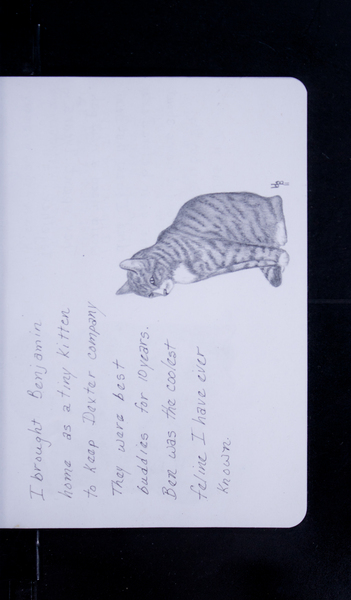 I brought Benjamin
home as a tiny kitten
to keep Dexter company
They were best
buddies for 10 years.
Ben was the coolest
feline I have ever
known